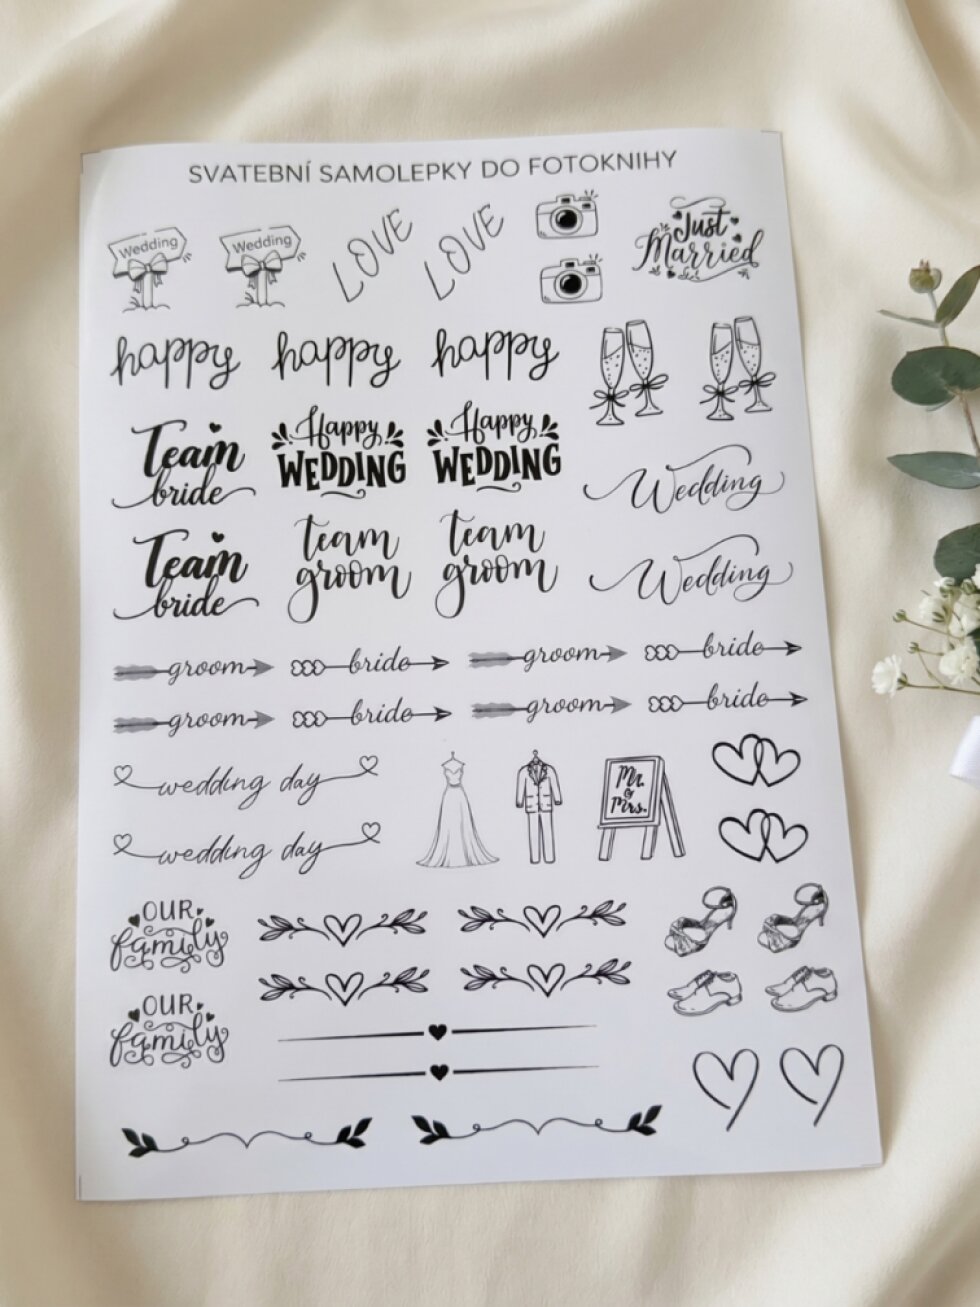 SVATEBNÍ SAMOLEPKY DO FOTOKNIHY
Wedding
Wedding
LOVE
LOVE
Just
Married
happy
happy
happy
Team
bride
Happy
WEDDING
Happy
WEDDING
Wedding
Team
bride
team
groom
team
groom
Wedding
groom
bride
groom
bride
groom
bride
groom
bride
wedding day
Mr.
&
Mrs.
wedding day
OUR
family
OUR
family